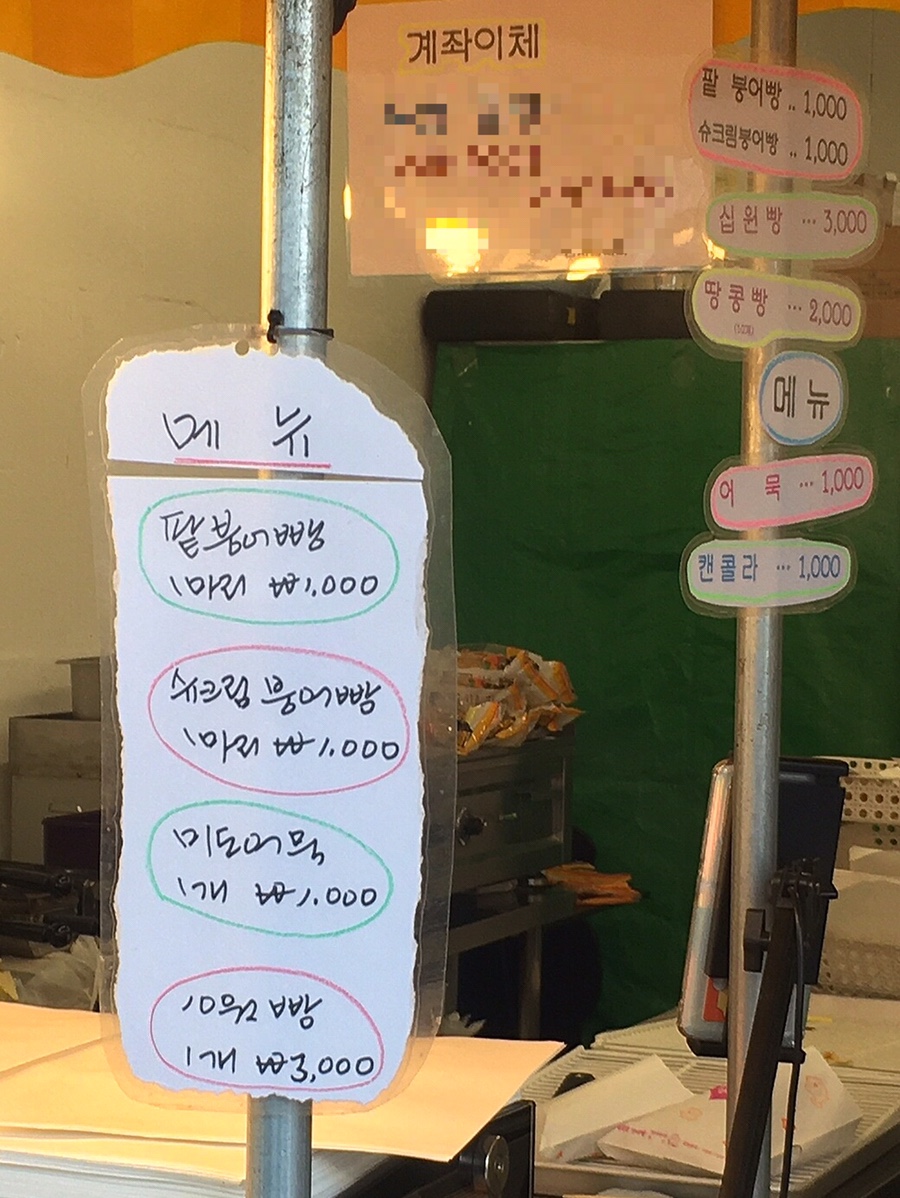 계좌이체
팥 붕어빵 .. 1,000
슈크림붕어빵 .. 1,000
십원빵 ... 3,000
땅콩빵 ... 2,000
메뉴
어묵 ... 1,000
캔콜라 ... 1,000
메 뉴
팥붕어빵
1마리 ₩1,000
슈크림 붕어빵
1마리 ₩1,000
미도어묵
1개 ₩1,000
10원빵
1개 ₩3,000